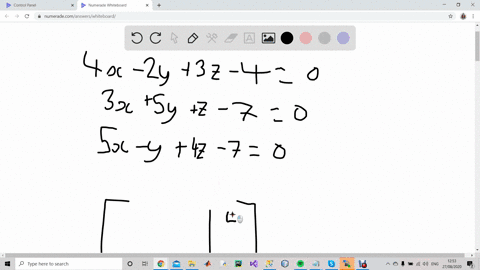 Control Panel
Numerade Whiteboard
numerade.com/answers/whiteboard/
4x - 2y + 3z - 4 = 0
3x + 5y + z - 7 = 0
5x - y + 4z - 7 = 0
Type here to search
12:53
27/08/2020